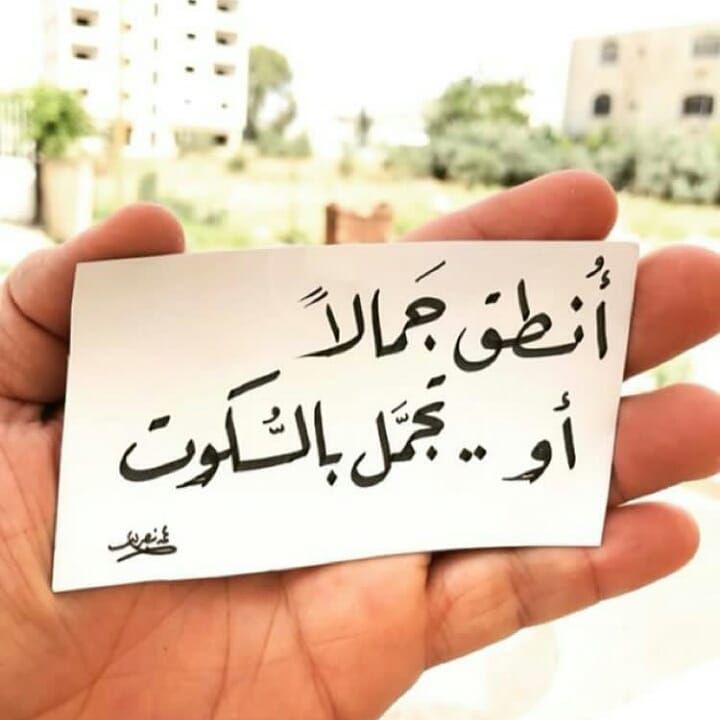 أُنطق جَمالاً
أو .. تجمَّل بالسُّكوت